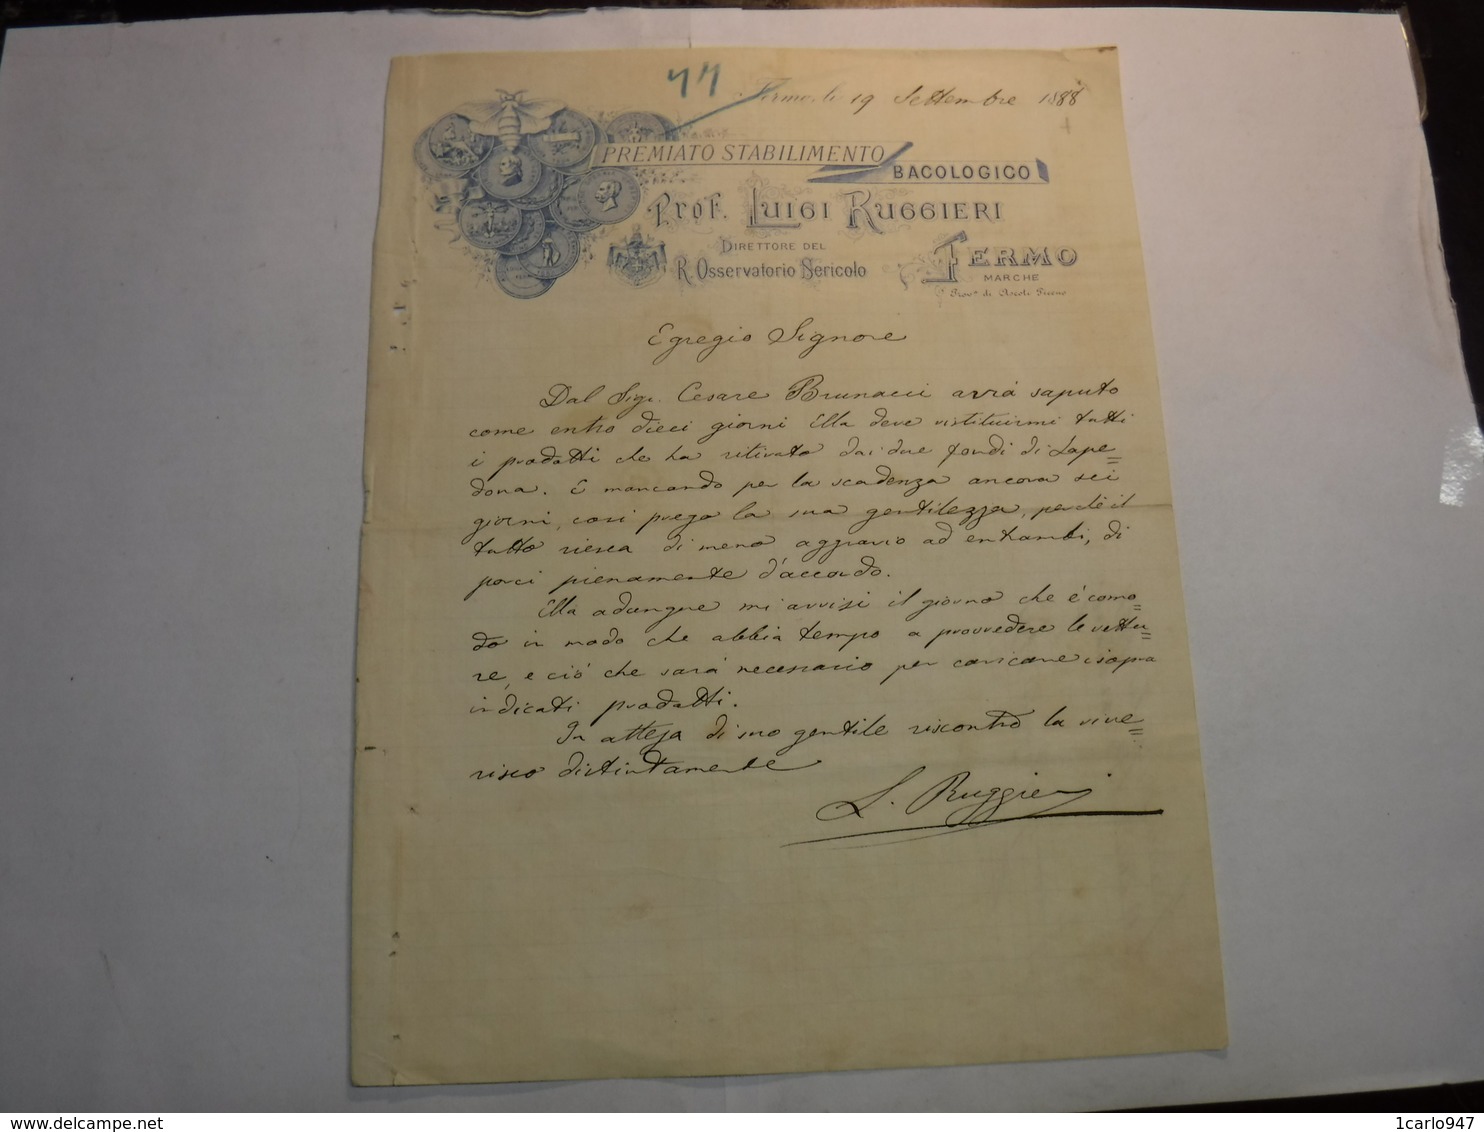 77
Fermo, li 19 Settembre 1888
PREMIATO STABILIMENTO
BACOLOGICO
Prof. LUIGI RUGGIERI
DIRETTORE DEL
R. Osservatorio Sericolo
FERMO
MARCHE
Prov.ª di Ascoli Piceno
Egregio Signore
Dal Sigr. Cesare Brunacci avrà saputo
come entro dieci giorni Ella deve ristituirmi tutti
i prodotti che ha ritirato dai due fondi di Lape=
dona. E mancando per la scadenza ancora sei
giorni, così prego la sua gentilezza, perchè il
tutto riesca di meno aggravio ad entrambi, di
porci pienamente d'accordo.
Ella adunque mi avvisi il giorno che è como=
do in modo che abbia tempo a provvedere le vettu=
re, e ciò che sarà necessario per caricare i sopra
indicati prodotti.
In attesa di suo gentile riscontro la rive=
risco distintamente
L. Ruggieri
delcampe.net
1carlo947